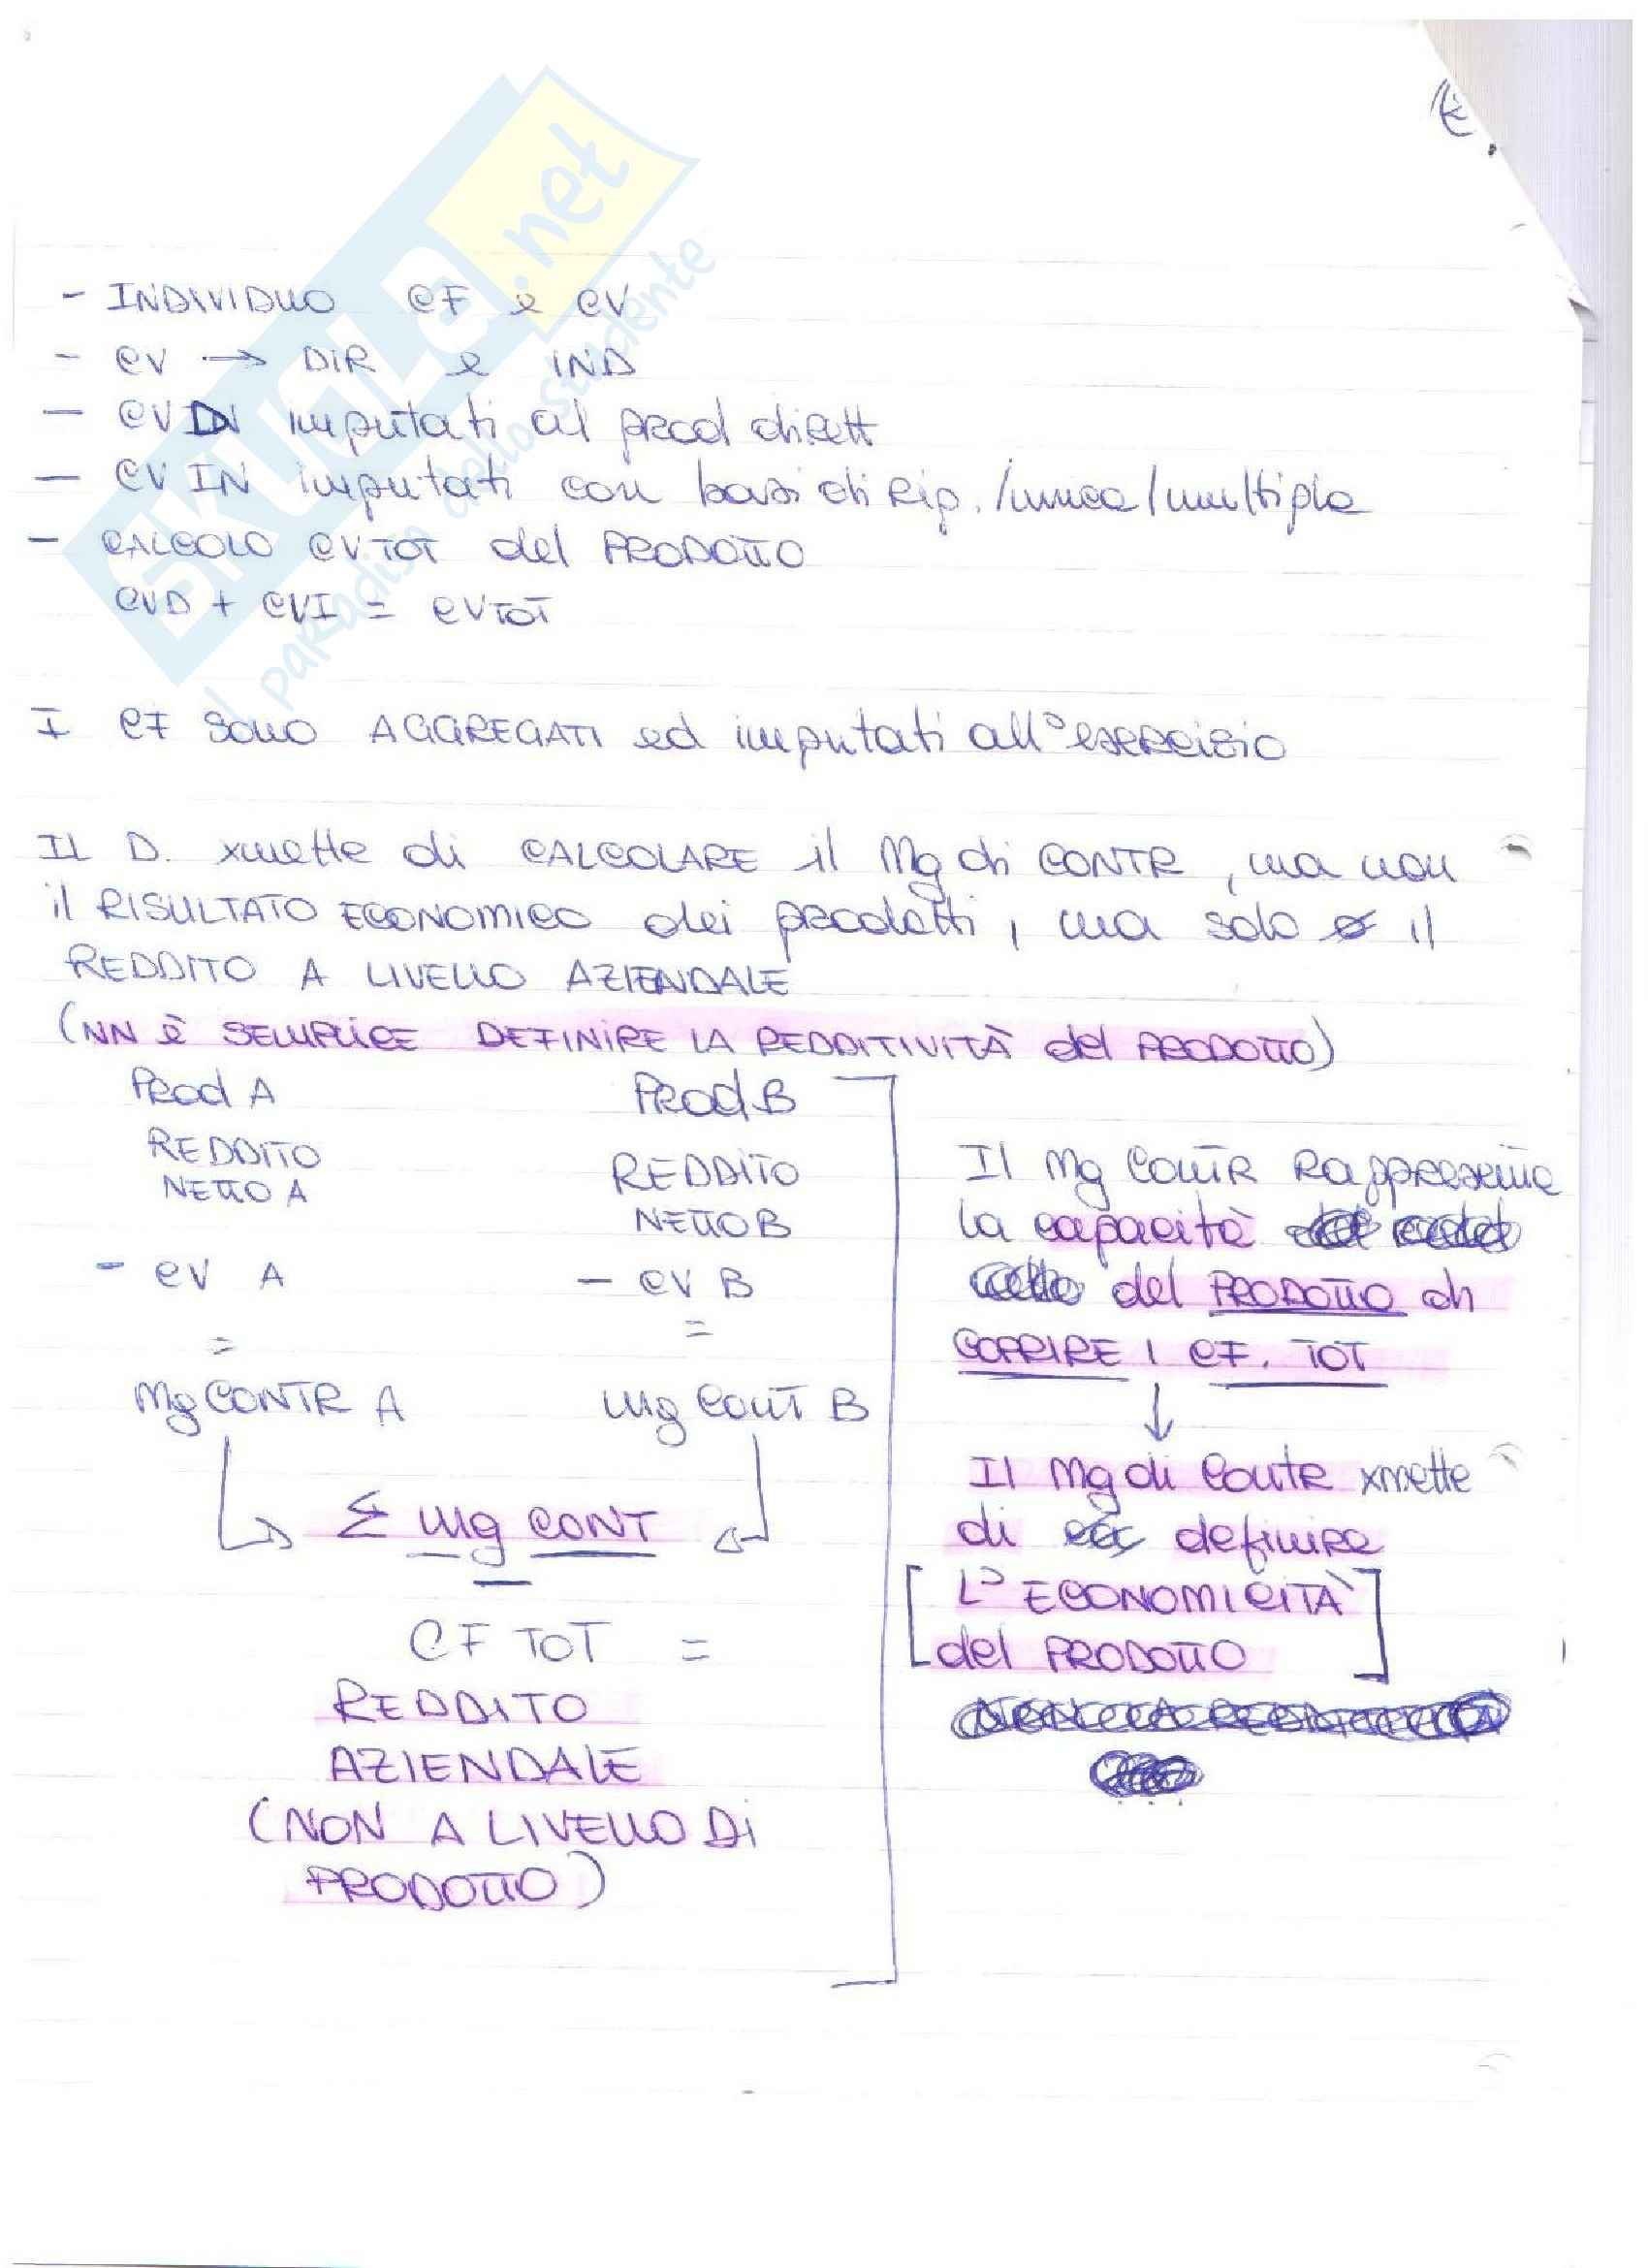 SKUOLa.net
il paradiso dello studente
- INDIVIDUO CF e CV
- CV → DIR e IND
- CVD imputati al prod dirett
- CV IN imputati con basi di Rip. /unica/multipla
- CALCOLO CV TOT del PRODOTTO
CVD + CVI = CVTOT
I CF sono AGGREGATI ed imputati all'esercizio
IL D. xmette di CALCOLARE il Mg di CONTR, ma non
il RISULTATO ECONOMICO dei prodotti, ma solo il
REDDITO A LIVELLO AZIENDALE
(NN è SEMPLICE DEFINIRE LA REDDITIVITÀ del PRODOTTO)
Prod A
REDDITO
NETTO A
- CV A
=
Mg CONTR A
Prod B
REDDITO
NETTO B
- CV B
=
Mg CONT B
Σ Mg CONT
-
CF TOT =
REDDITO
AZIENDALE
(NON A LIVELLO Di
PRODOTTO)
Il Mg CONTR Rappresenta
la capacità
del PRODOTTO di
COPRIRE I CF. TOT
↓
Il Mg di Contr xmette
di definire
[L' ECONOMICITÀ
del PRODOTTO]